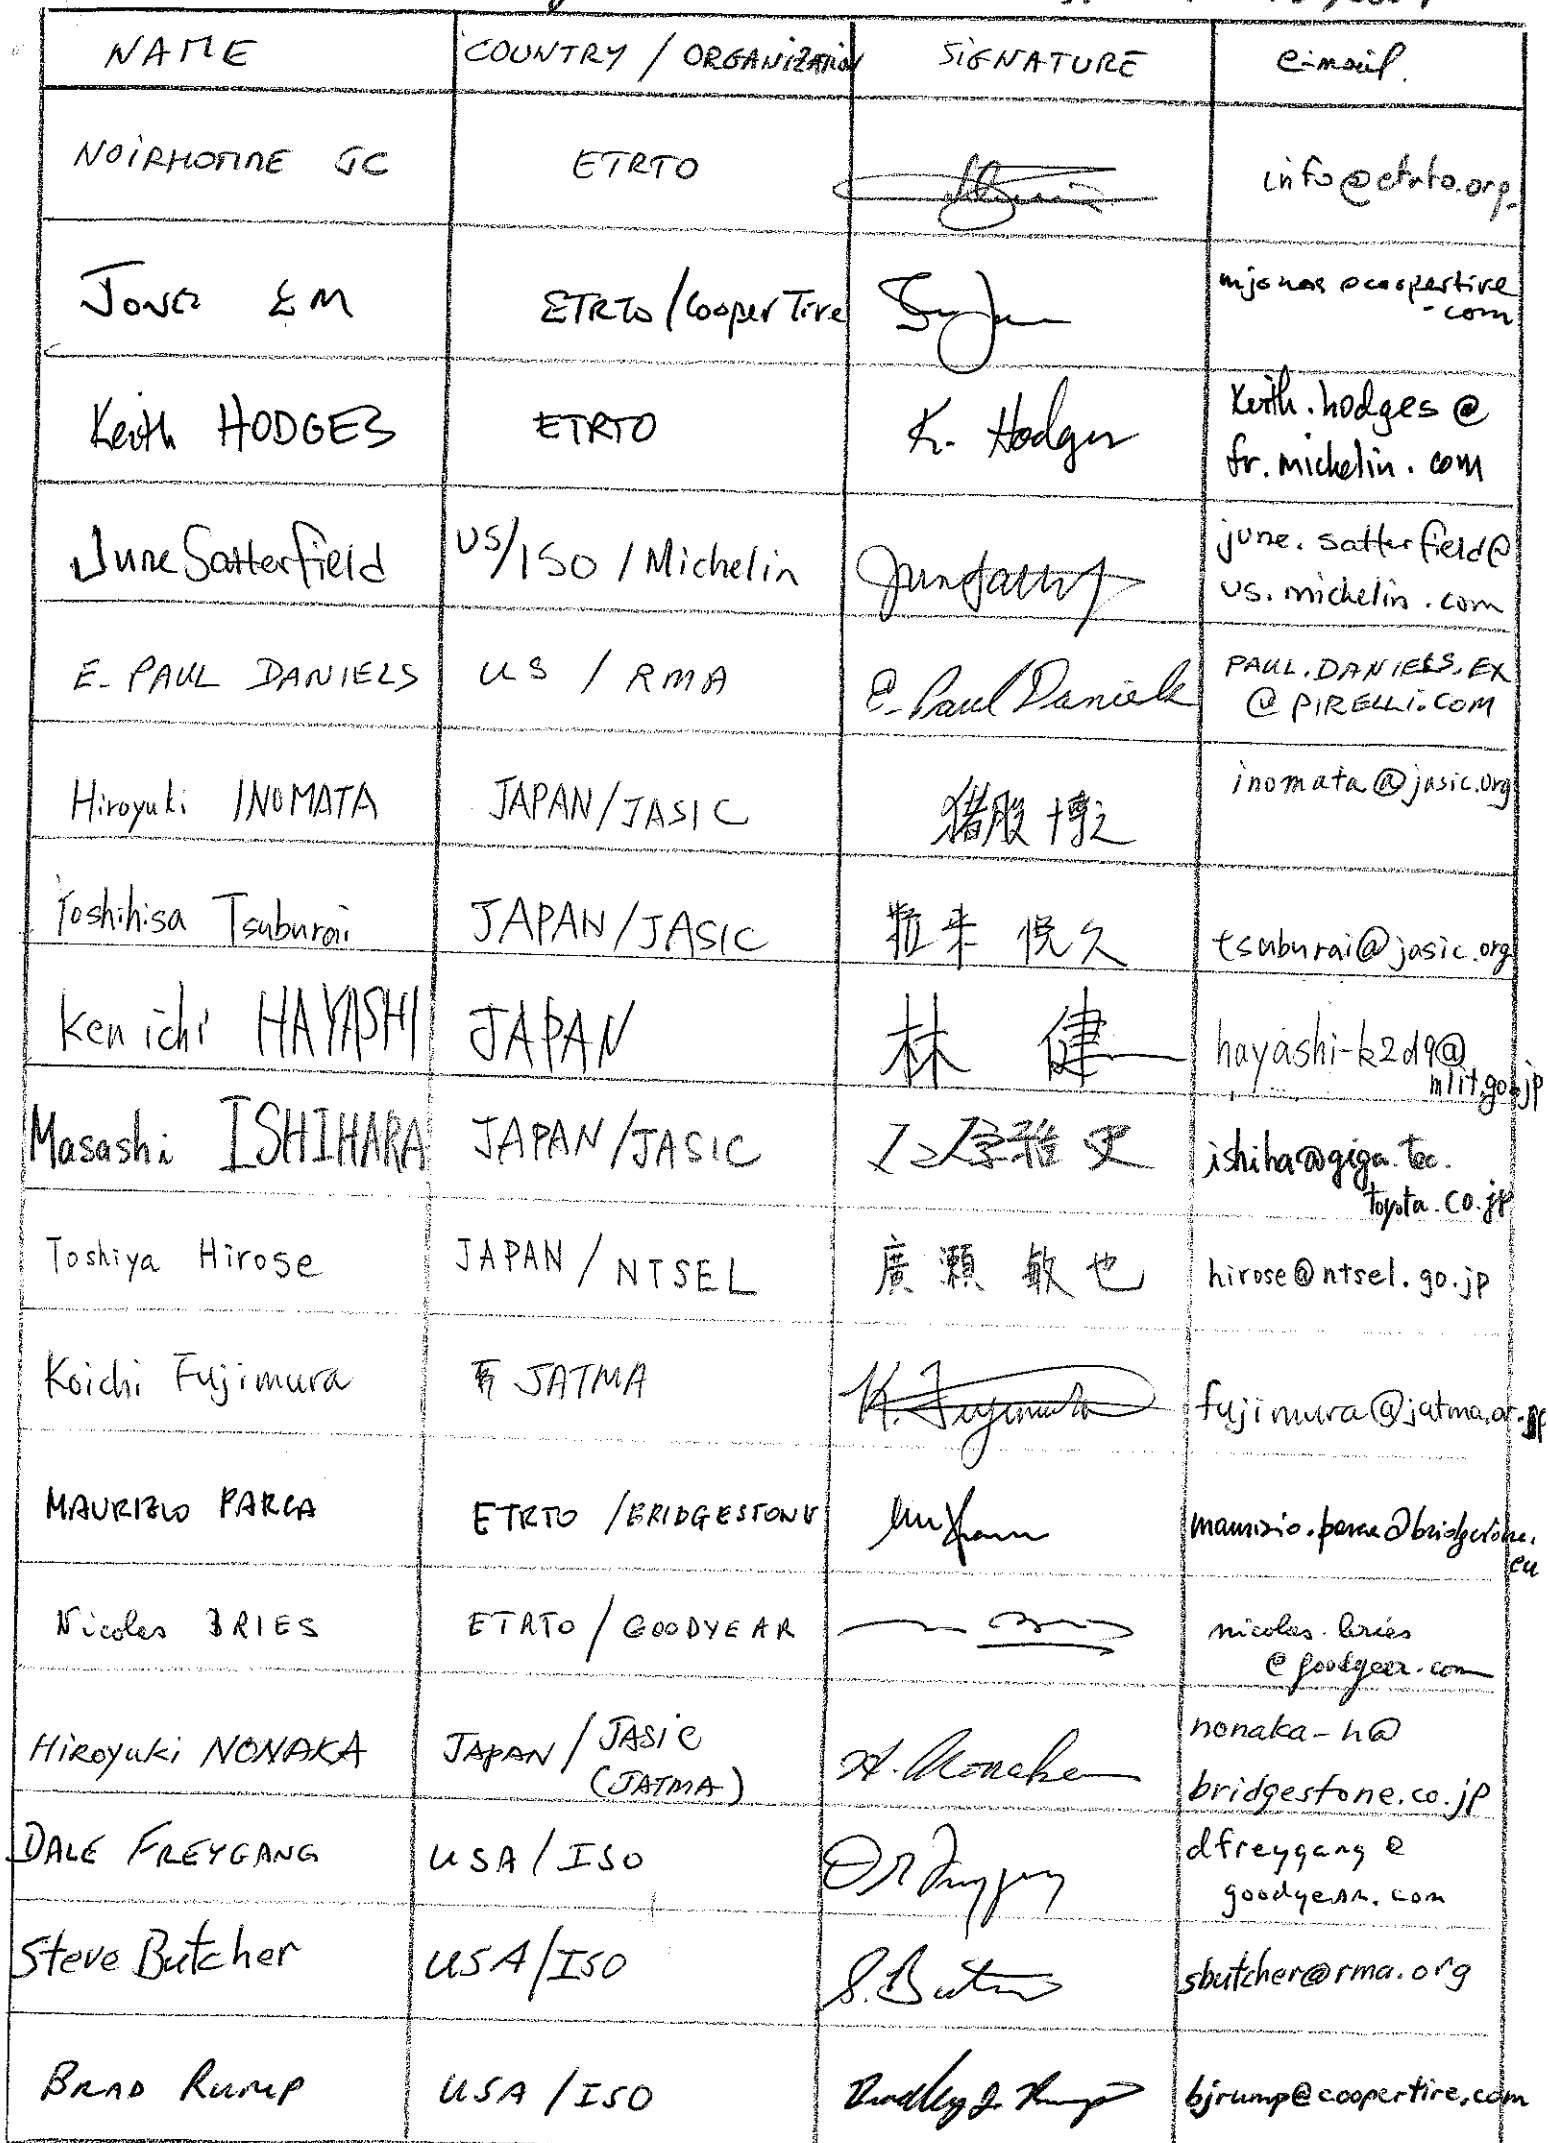 NAME COUNTRY / ORGANIZATION SIGNATURE e-mail.
NOIRHOMME GC ETRTO info@etrto.org.
Jones EM ETRTO/Cooper Tire mjones@coopertire
.com
Keith HODGES ETRTO K. Hodges Keith.hodges@
fr.michelin.com
June Satterfield US/ISO / Michelin june.satterfield@
us.michelin.com
E. PAUL DANIELS US / RMA E. Paul Daniels PAUL.DANIELS.EX
@PIRELLI.COM
Hiroyuki INOMATA JAPAN/JASIC 猪股博之 inomata@jasic.org
Yoshihisa Tsuburai JAPAN/JASIC 粒来 悦久 tsuburai@jasic.org
Kenichi HAYASHI JAPAN 林 健一 hayashi-k2d9@
mlit.go.jp
Masashi ISHIHARA JAPAN/JASIC ishiha@giga.tec.
toyota.co.jp
Toshiya Hirose JAPAN / NTSEL 廣瀬 敏也 hirose@ntsel.go.jp
Koichi Fujimura JATMA K. Fujimura fujimura@jatma.or.jp
MAURIZIO PARCA ETRTO /BRIDGESTONE maurizio.parca@bridgestone.
eu
Nicolas BRIES ETRTO / GOODYEAR nicolas.bries
@goodyear.com
Hiroyuki NONAKA JAPAN / JASIC
(JATMA) H. Nonaka nonaka-h@
bridgestone.co.jp
DALE FREYGANG USA / ISO dfreygang@
goodyear.com
Steve Butcher USA/ISO sbutcher@rma.org
BRAD RUMP USA / ISO Bradley J. Rump bjrump@coopertire.com